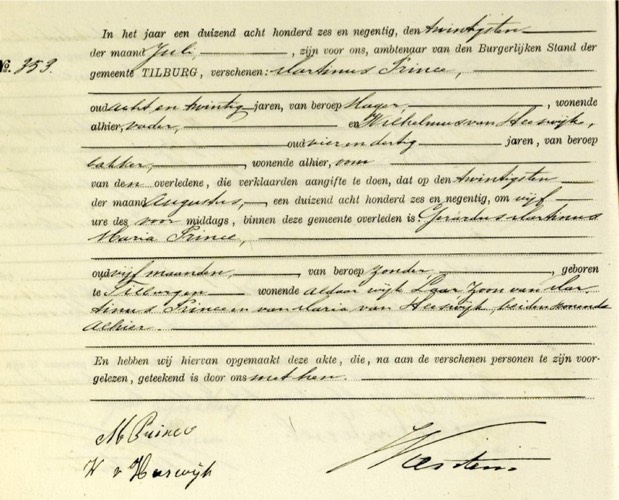 In het jaar een duizend acht honderd zes en negentig, den twintigsten
der maand Juli, , zijn voor ons, ambtenaar van den Burgerlijken Stand der
No. 353. gemeente TILBURG, verschenen: Martinus Prince,
oud acht en twintig jaren, van beroep , wonende
alhier, vader, en Wilhelmus van Heeswijk,
oud vier en dertig jaren, van beroep
bakker, , wonende alhier, oom
van den overledene, die verklaarden aangifte te doen, dat op den twintigsten
der maand Augustus, een duizend acht honderd zes en negentig, om vijf
ure des voor middags, binnen deze gemeente overleden is Gerardus Martinus
Maria Prince,
oud vijf maanden, , van beroep zonder , geboren
te Tilburg en wonende aldaar wijk Laar Zoon van Mar
tinus Prince en van Maria van Heeswijk, beiden wonende
alhier
En hebben wij hiervan opgemaakt deze akte, die, na aan de verschenen personen te zijn voor-
gelezen, geteekend is door ons met hen.
M Prince
W v Heeswijk